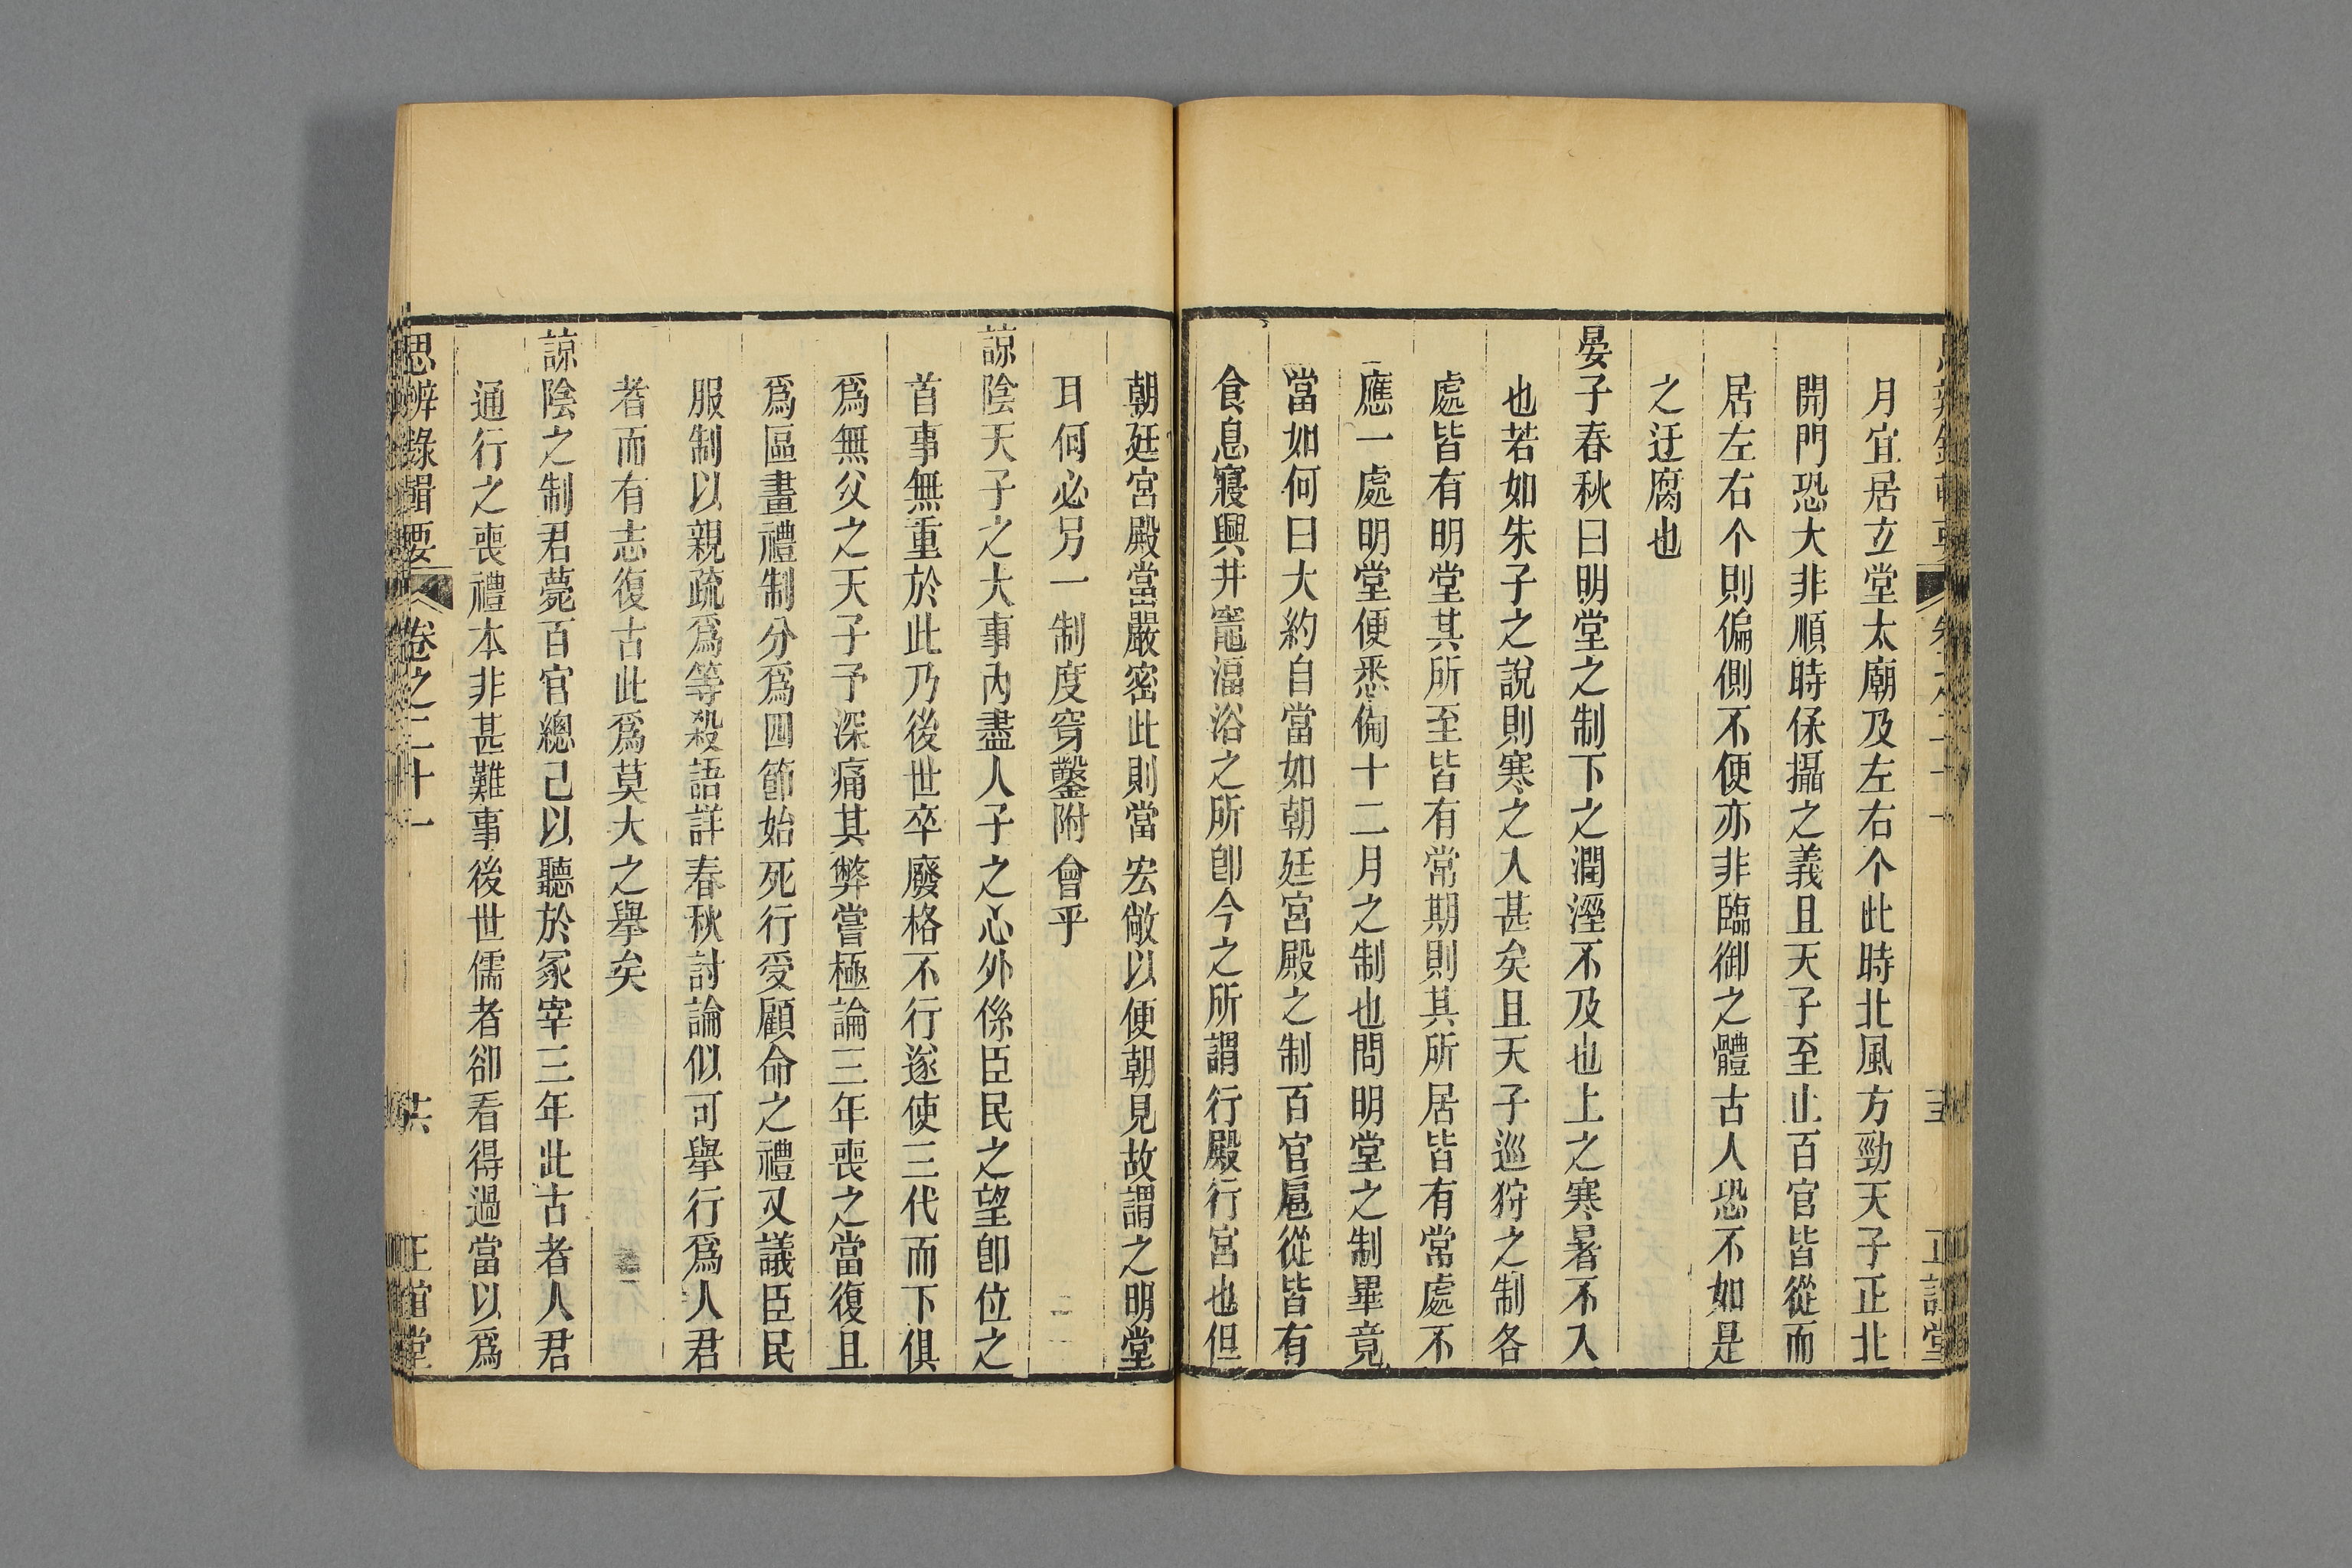 月宜居立堂太廟及左右个此時北風方勁天子正北
開門恐大非順時保攝之義且天子至止百官皆從而
居左右个則偏側不便亦非臨御之體古人恐不如是
之迂腐也
晏子春秋曰明堂之制下之潤溼不及也上之寒暑不入
也若如朱子之說則寒之入甚矣且天子巡狩之制各
處皆有明堂其所至皆有常期則其所居皆有常處不
應一處明堂便悉備十二月之制也問明堂之制畢竟
當如何曰大約自當如朝廷宮殿之制百官扈從皆有
食息寢興井竈湢浴之所卽今之所謂行殿行宮也但
朝廷宮殿當嚴密此則當宏敞以便朝見故謂之明堂
耳何必另一制度穿鑿附會乎
諒陰天子之大事內盡人子之心外係臣民之望卽位之
首事無重於此乃後世卒廢格不行遂使三代而下俱
爲無父之天子予深痛其弊嘗極論三年喪之當復且
爲區畫禮制分爲四節始死行受顧命之禮又議臣民
服制以親疏爲等殺語詳春秋討論似可舉行爲人君
者而有志復古此爲莫大之舉矣
諒陰之制君薨百官總己以聽於冢宰三年此古者人君
通行之喪禮本非甚難事後世儒者卻看得過當以爲
思辨錄輯要 卷之二十一 共 正誼堂